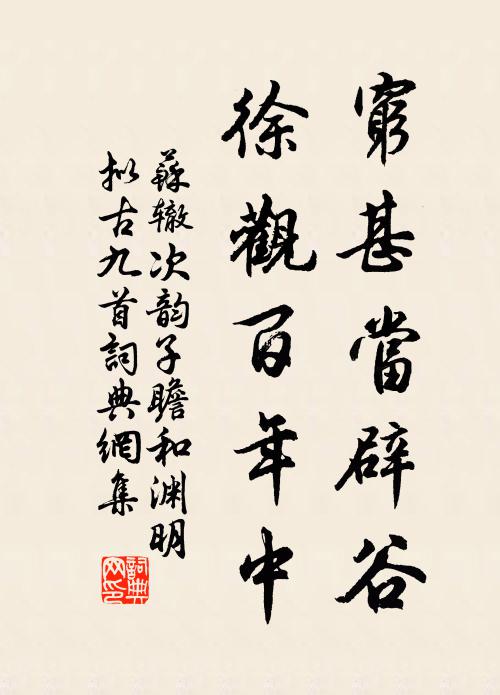 窮甚當辟谷
徐觀百年中
蘇辙次韵子瞻和渊明
拟古九首詞典網集
詞典网印